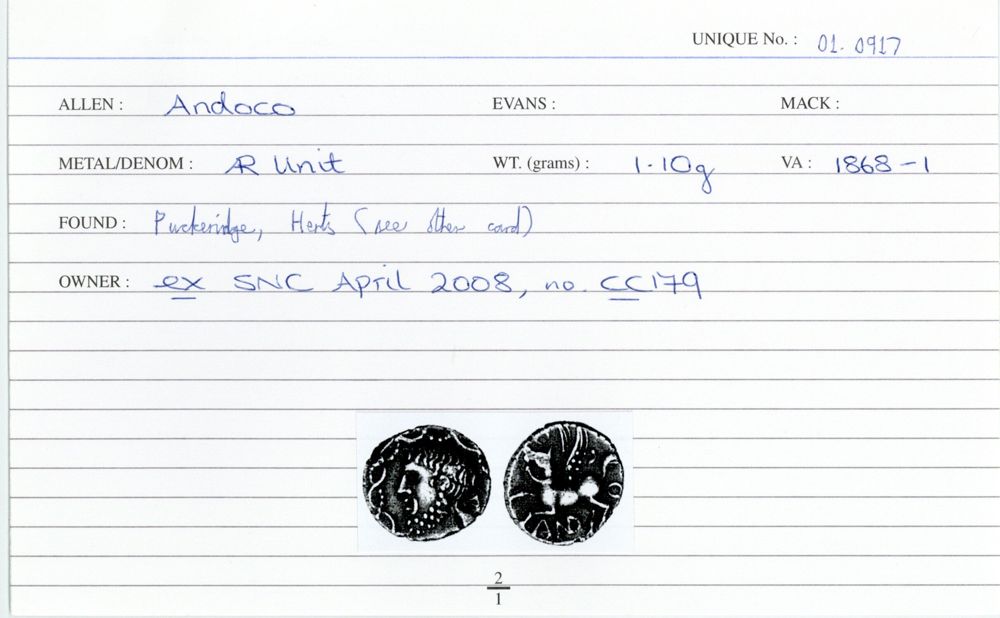 UNIQUE No. : 01. 0917
ALLEN : Andoco EVANS : MACK :
METAL/DENOM : AR Unit WT. (grams) : 1.10g VA : 1868-1
FOUND : Puckeridge, Herts (see other card)
OWNER : ex SNC April 2008, no. CC179
AND
2
1